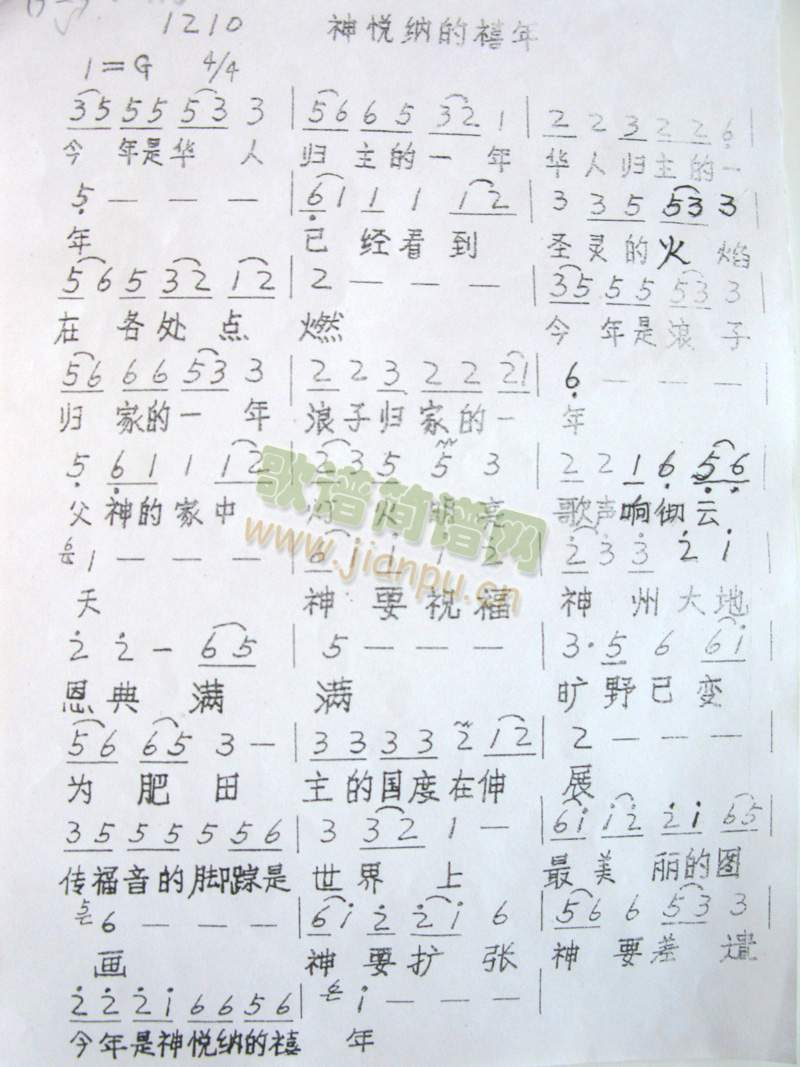 1210 神悦纳的禧年
1=G 4/4
35 55 53 3 | 56 6 5 32 1 | 2 2 3 2 2 6 |
今 年是华 人 归 主的一 年 华人归主的一
5 — — — | 61 1 1 12 | 3 35 53 3 |
年 已 经看到 圣灵的火 焰
56 5 32 12 | 2 — — — | 35 55 53 3 |
在 各处 点 燃 今 年是浪 子
56 66 53 3 | 2 2 3 2 2 21 | 6 — — — |
归 家的一 年 浪子归家的一 年
5 61 1 12 | 2 3 5 5 3 | 2 2 1 6 56 |
父神的家中 灯 火 明亮 歌声响彻云
6 1 — — — | 6 1 1 2 | 2 3 3 2 1 |
天 神 要祝福 神 州大地
2 2 — 65 | 5 — — — | 3· 5 6 61 |
恩典 满 满 旷野已变
56 65 3 — | 33 33 2 12 | 2 — — — |
为 肥 田 主的国度在伸 展
35 55 55 56 | 3 32 1 — | 61 12 21 65 |
传福音的脚踪是 世界 上 最 美 丽的图
5 6 — — — | 61 2 21 6 | 56 6 53 3 |
画 神 要扩 张 神 要差 遣
22 21 66 56 | 6 1 — — — |
今年是神悦纳的禧 年
歌谱简谱网
www.jianpu.cn